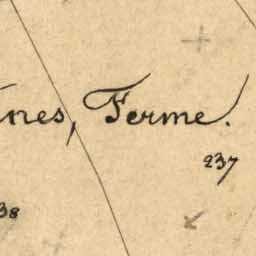 nes, Ferme.
237
38